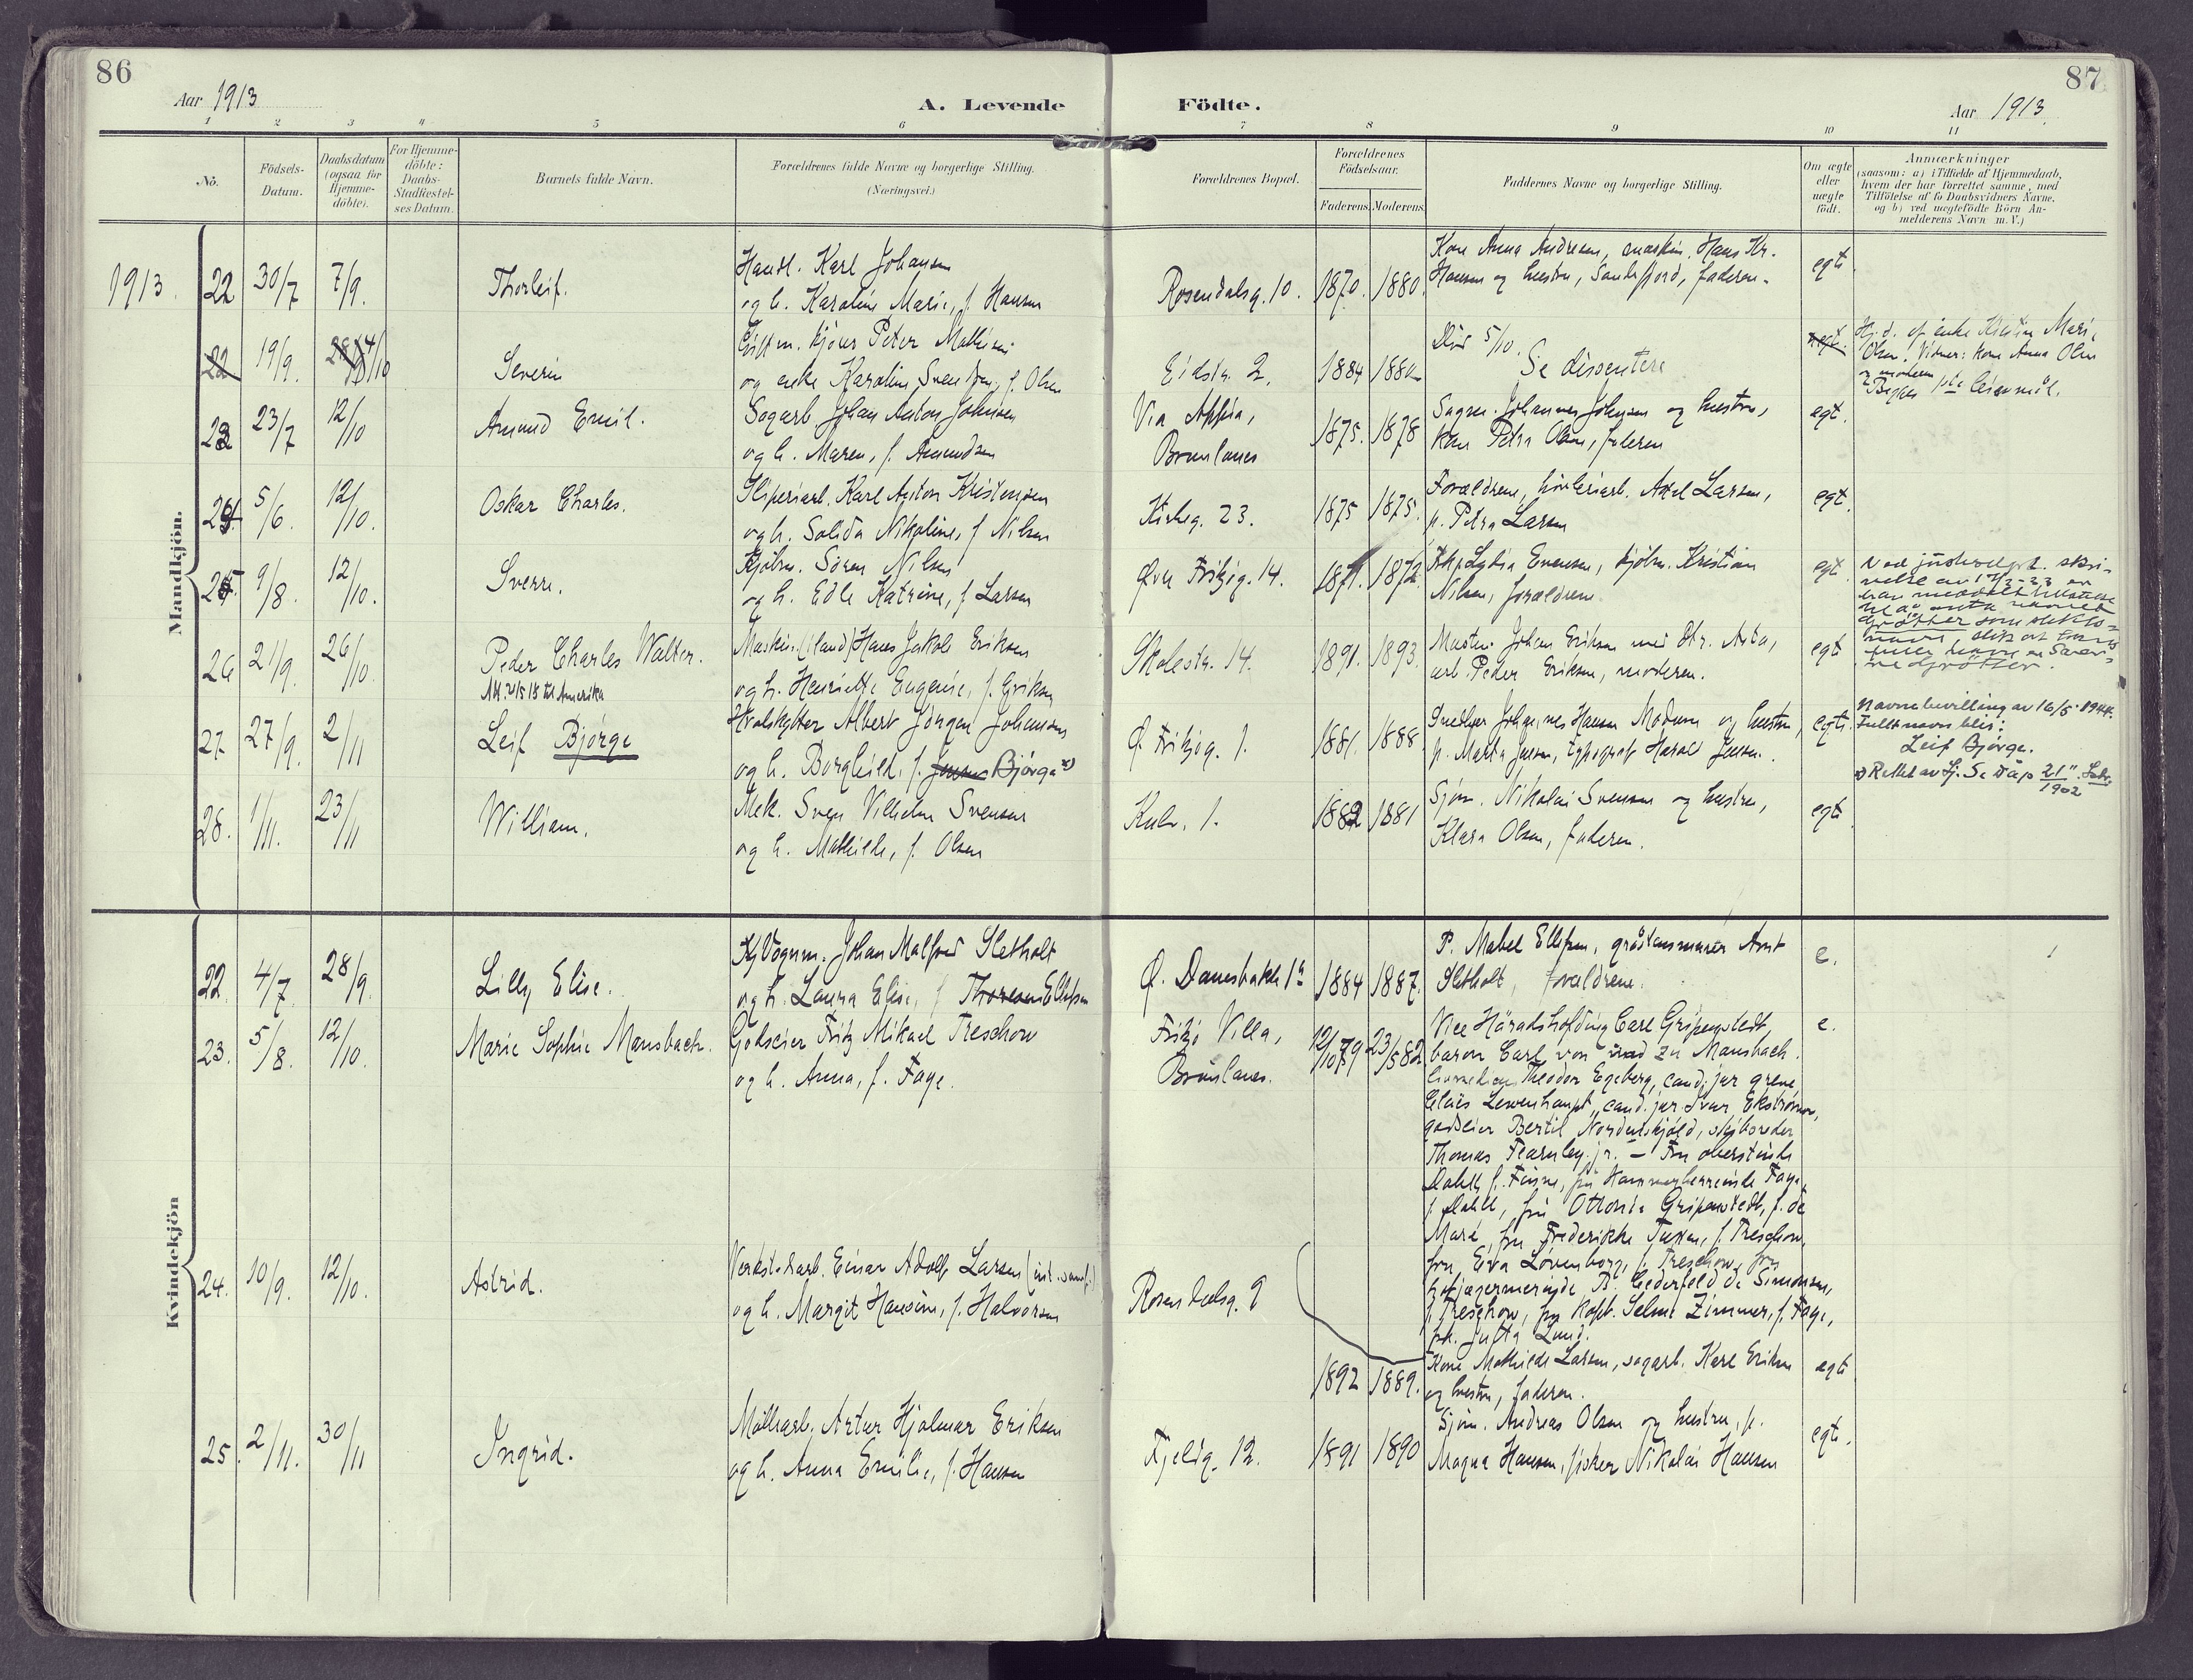 86
Aar 1913
A. Levende
Födte.
Aar 1913.
87
1 2 3 4 5 6 7 8 9 10 11
No.
Födsels-
Datum.
Daabsdatum
(ogsaa for
Hjemme-
döbte).
For Hjemme-
döbte:
Daabs-
Stadfestel-
ses Datum.
Barnets fulde Navn.
Forældrenes fulde Navne og borgerlige Stilling.
(Næringsvei.)
Forældrenes Bopæl.
Forældrenes
Födselsaar.
Faderens. Moderens.
Faddernes Navne og borgerlige Stilling.
Om ægte
eller
uægte
födt.
Anmærkninger
(saasom: a) i Tilfælde af Hjemmedaab,
hvem der har forrettet samme, med
Tilföielse af to Daabsvidners Navne,
og b) ved uægtefödte Börn An-
melderens Navn m. V.)
Mandkjön.
1913. 22 30/7 7/9. Thorleif.
Handl. Karl Johansen
og h. Karoline Marie, f. Hansen
Rosendalsg. 10. 1870. 1880.
Kone Anna Andresen, maskin. Hans Kr.
Hansen og hustru, Sandefjord, faderen.
egte.
22 19/9. 14/10 Severin
Peter
og enke Karoline Svendsen, f. Olsen
Eidstr. 2. 1884 1880
Död 5/10.
Se dissentere
uegt.
Hj.d. af enke Marie
Olsen. Vidner: Kone Anna Olsen
og moderen
23 23/7 12/10 Amund Emil.
Sagarb. Johan Anton Johnsen
og h. Maren, f. Amundsen
Via Appia,
Brunlanes
1875. 1878
Sagm. Johannes Johnsen og hustru,
kone Petra Olsen, faderen
egt.
24. 5/6. 12/10. Oskar Charles.
Sliperiarb. Karl Anton Kristensen
og h. Solida Nikoline, f. Nilsen
Kirkeg. 23. 1875 1875.
Forældrene, Axel Larsen,
p. Petra Larsen
egt.
25. 9/8. 12/10. Sverre.
Kjölm. Sören Nilsen
og h. Edle Katrine, f. Larsen
Øvre Fritzøg. 14. 1871. 1872.
Lydia Evensen, kjölm. Kristian
Nilsen, forældrene.
egt.
Ved justisdept. skri-
velse av 17/3-23 er
han meddelt tillatelse
til å anta navnet
Grøtter som slekts-
navn, slik at hans
fulle navn er Sver-
re Grøtter.
26 21/9. 26/10. Peder Charles Walter.
Att. 21/5 18 til Amerika
Maskin. (iland) Hans Jakob Eriksen
og h. Henriette Eugenie, f. Eriksen
Skolestr. 14. 1891. 1893.
Johan Eriksen med dtr. Asta,
arb. Peder Eriksen, moderen.
egt
27. 27/9. 2/11 Leif Bjørge
Hvalskytter Albert Jörgen Johansen
og h. Borghild, f. Jensen Bjørge x)
Ø. Fritzøg. 1. 1881. 1888
Snedker Johannes Hansen Modum og hustru,
p. Marta Jensen, typograf Harald Jensen.
egte.
Navnebevilling av 16/5. 1944.
Fullt navn blir:
Leif Bjørge.
x) Rettet av Sj. Se dåp 21" Febr.
1902
28. 1/11. 23/11 William.
Mek. Sven Vilhelm Svensen
og h. Mathilde, f. Olsen
1. 1882 1881
Sjöm. Nikolai Svensen og hustru,
Klara Olsen, faderen.
egte.
Kvindekjön
22. 4/7. 28/9. Lilly Elise.
Johan Malfred Sletholt
og h. Laura Elise, f. Thoresen Ellefsen
Ø. Danebakke 1a 1884 1887.
P. Mabel Ellefsen, gråstensmurer Arnt
Sletholt, forældrene.
e.
23. 5/8. 12/10. Marie Sophie Mansbach.
Godseier Fritz Mikael Treschow
og h. Anna, f. Faye.
Fritzö Villa,
Brunlanes.
12/10 79 23/5 82
Vice Häradshöfding Carl Gripenstedt,
baron Carl von und zu Mansbach.
Theodor Egeberg, cand. jur greve
Claës Lewenhaupt, cand. jur Ivar Ekströmer,
godseier Bertil Nordenskjöld, skibsreder
Thomas Fearnley jr. – Fru oberstinde
Dahll, f. Finne, fru Kammerherreinde Faye,
f. Dahll, fru Ottonia Gripenstedt, f. de
Maré, fru Frederikke Tuxen, f. Treschow,
fru Eva Lövenborg, f. Treschow, fru
hofjægermesterinde B. Cederfeld de Simonsen,
f. Treschow, fru kapt. Selma Zimmer, f. Faye,
frk. Jutta Lund.
e.
24. 10/9. 12/10. Astrid.
Verkst.arb. Einar Adolf Larsen
og h. Margit Hansine, f. Halvorsen
Rosendalsg. 9
1892 1889.
Kone Mathilde Larsen, sagarb. Karl Eriksen
og hustru, faderen.
egte
25. 2/11. 30/11 Ingrid.
Möllearb. Artur Hjalmar Eriksen
og h. Anna Emilie, f. Hansen
Fjeldg. 12. 1891 1890
Sjöm. Andreas Olsen og hustru, p.
Magna Hansen, fisker Nikolai Hansen
egte.